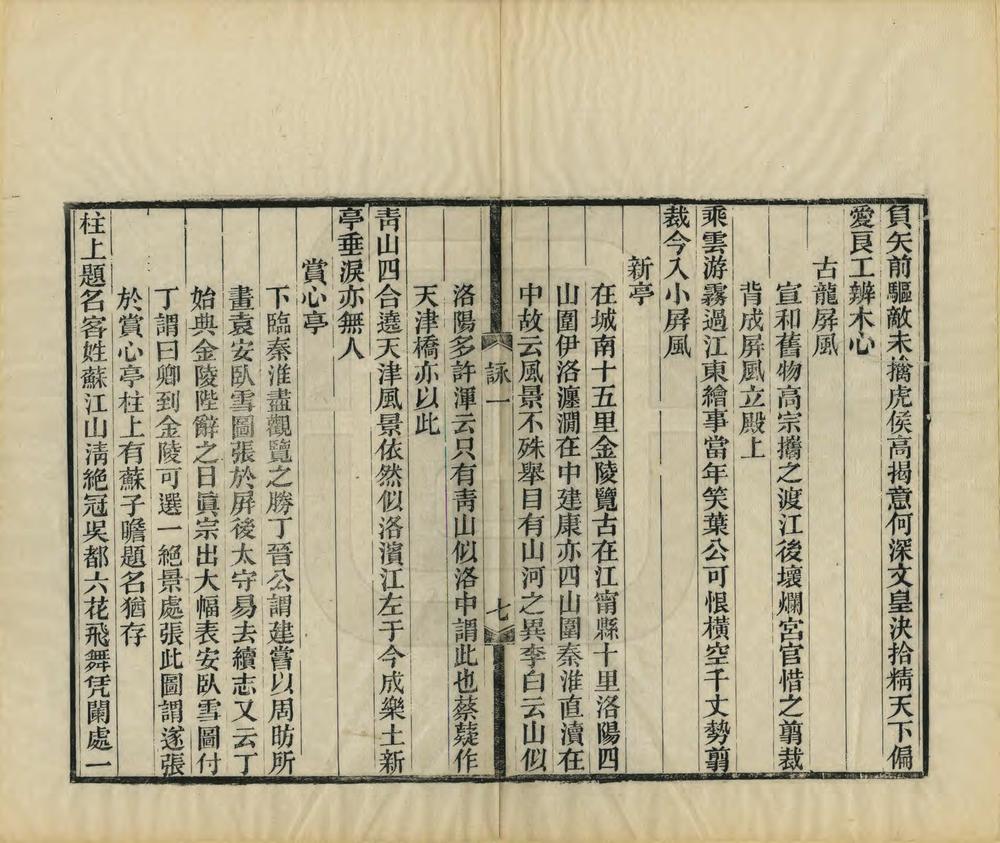 負矢前驅敵未擒虎侯高揭意何深文皇決拾精天下偏
愛良工辨木心
古龍屏風
宣和舊物高宗攜之渡江後壞爛宮官惜之翦裁
背成屏風立殿上
乘雲游霧過江東繪事當年笑葉公可恨橫空千丈勢翦
裁今入小屏風
新亭
在城南十五里金陵覽古在江甯縣十里洛陽四
山圍伊洛瀍澗在中建康亦四山圍秦淮直瀆在
中故云風景不殊舉目有山河之異李白云山似
詠一
七
洛陽多許渾云只有靑山似洛中謂此也蔡薿作
天津橋亦以此
靑山四合遶天津風景依然似洛濱江左于今成樂土新
亭垂淚亦無人
賞心亭
下臨秦淮盡觀覽之勝丁晉公謂建嘗以周昉所
畫袁安臥雪圖張於屏後太守易去續志又云丁
始典金陵陛辭之日眞宗出大幅袁安臥雪圖付
丁謂曰卿到金陵可選一絕景處張此圖謂遂張
於賞心亭柱上有蘇子瞻題名猶存
柱上題名客姓蘇江山淸絕冠吳都六花飛舞凭闌處一